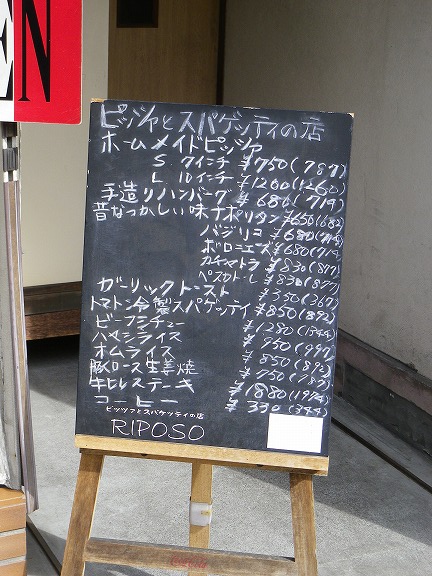 EN
ピッツァとスパゲッティの店
ホームメイドピッツァ
S 7インチ ¥750(787)
L 10インチ ¥1200(1260)
手造りハンバーグ ¥680(714)
昔なつかしい味ナポリタン ¥650(682)
バジリコ ¥680(714)
ボロニェーズ ¥680(714)
カチャトラ ¥830(871)
ペスカトーレ ¥830(871)
ガーリックトースト ¥350(367)
トマトン冷製スパゲッティ ¥850(892)
ビーフシチュー ¥1280(1344)
ハヤシライス ¥950(997)
オムライス ¥850(892)
豚ロース生姜焼 ¥750(787)
牛ヒレステーキ ¥1880(1974)
コーヒー ¥330(344)
ピッツァとスパゲッティの店
RIPOSO